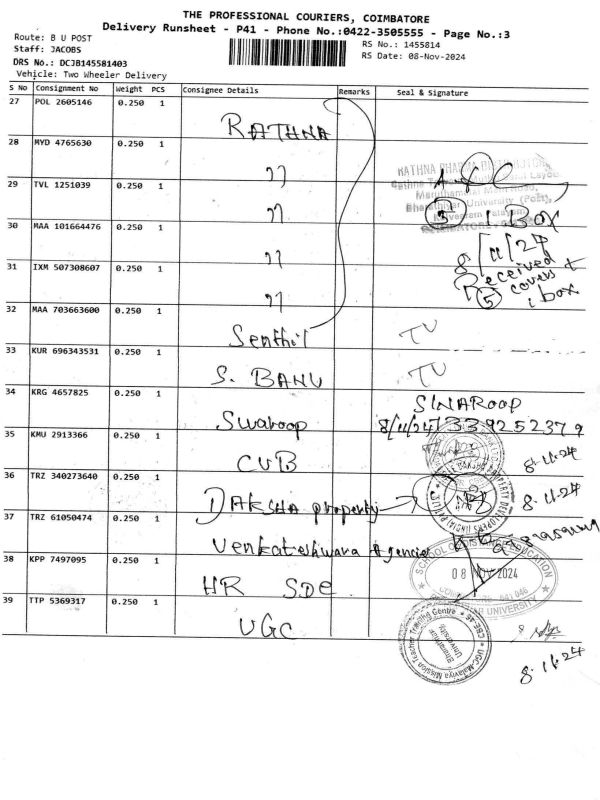 THE PROFESSIONAL COURIERS, COIMBATORE
Delivery Runsheet - P41 - Phone No.:0422-3505555 - Page No.:3
Route: B U POST
Staff: JACOBS
DRS No.: DCJB145581403
Vehicle: Two Wheeler Delivery
RS No.: 1455814
RS Date: 08-Nov-2024
S No Consignment No Weight PCS Consignee Details Remarks Seal & Signature
27 POL 2605146 0.250 1 RATHNA
28 MYD 4765630 0.250 1 "
29 TVL 1251039 0.250 1 "
30 MAA 101664476 0.250 1 "
31 IXM 507308607 0.250 1 "
RATHNA PHARMA
Bharathiar University (Post),
3 1 Box
8/11/24
Received
5 covers +
1 box
32 MAA 703663600 0.250 1 Senthil TV
33 KUR 696343531 0.250 1 S. BANU TV
34 KRG 4657825 0.250 1 Swaroop
SWAROOP
8/11/24
35 KMU 2913366 0.250 1 CUB 8.11.24
36 TRZ 340273640 0.250 1 DAKSHA property 8.11.24
37 TRZ 61050474 0.250 1 Venkateshwara Agencies
38 KPP 7497095 0.250 1 HR SDE
SCHOOL OF DISTANCE EDUCATION
08 NOV 2024
COIMBATORE - 641 046
BHARATHIAR UNIVERSITY
39 TTP 5369317 0.250 1 UGC
UGC-Malaviya Mission Teacher Training Centre
Bharathiar
University
8.11.24